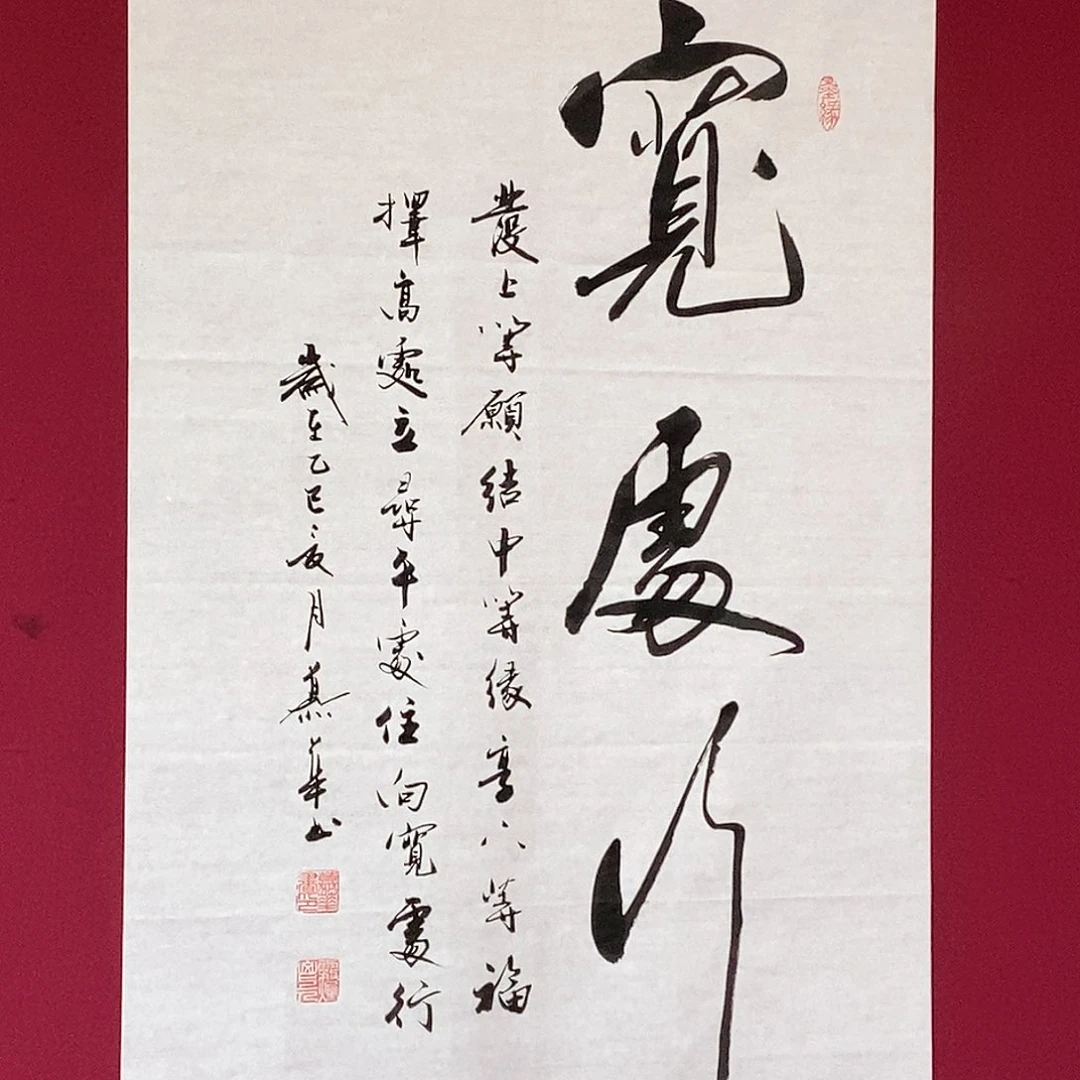 墨緣
寬處行
發上等願結中等緣享下等福
擇高處立尋平處住向寬處行
歲在乙巳夏月慕華書